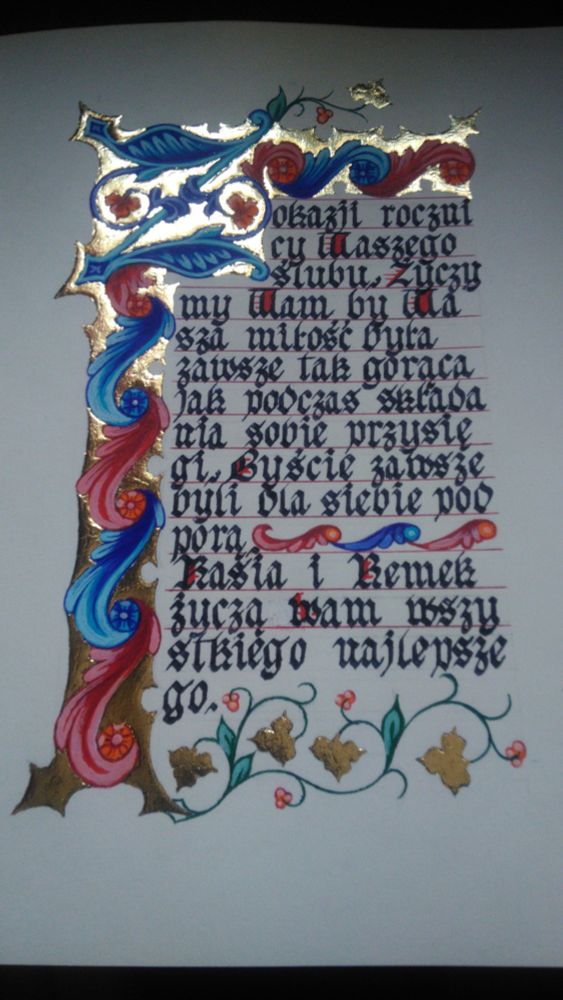 Z okazji roczni
cy Waszego
ślubu. Życzy
my Wam by Wa
sza miłość była
zawsze tak gorąca
jak podczas składa
nia sobie przysię
gi. Byście zawsze
byli dla siebie pod
porą
Kasia i Remek
życzą wam wszy
stkiego najlepsze
go.